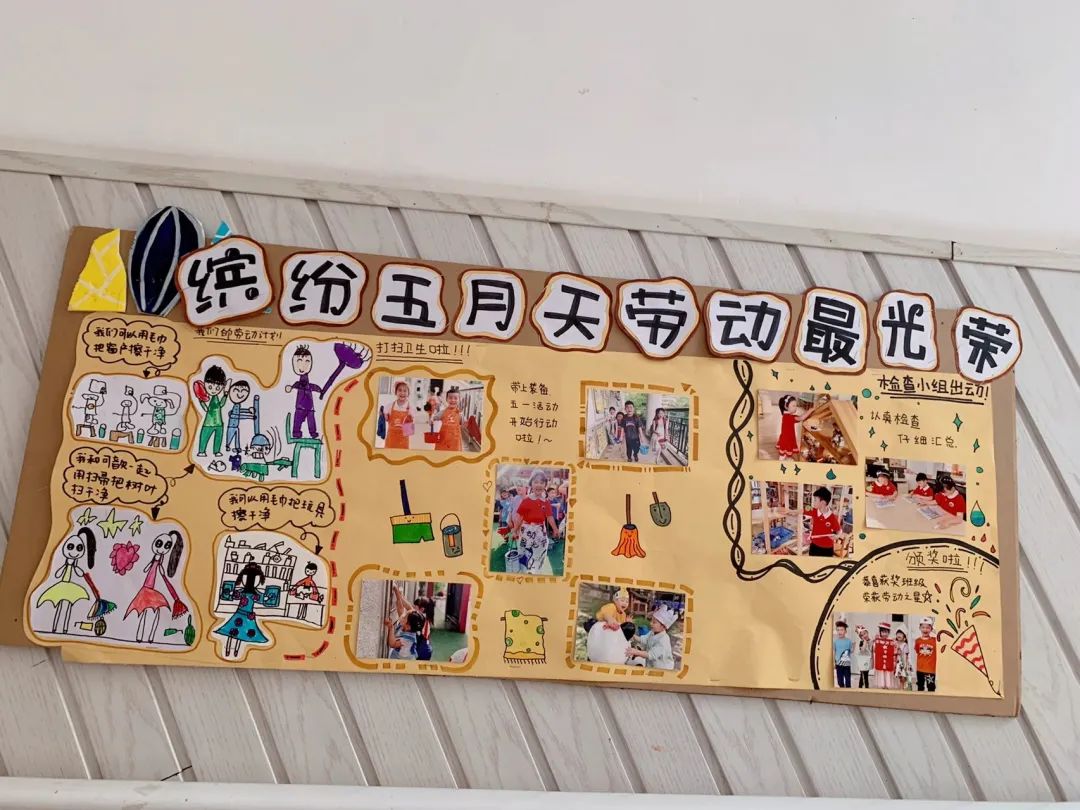 缤纷五月天劳动最光荣
我们的劳动计划
我们可以用毛巾
把窗户擦干净
我和可歆一起
用扫帚把树叶
扫干净
我可以用毛巾把玩具
擦干净
打扫卫生啦!!!
带上装备
五一活动
开始行动
啦!~
检查小组出动!
认真检查
仔细汇总
颁奖啦!!!
恭喜获奖班级
荣获劳动之星☆